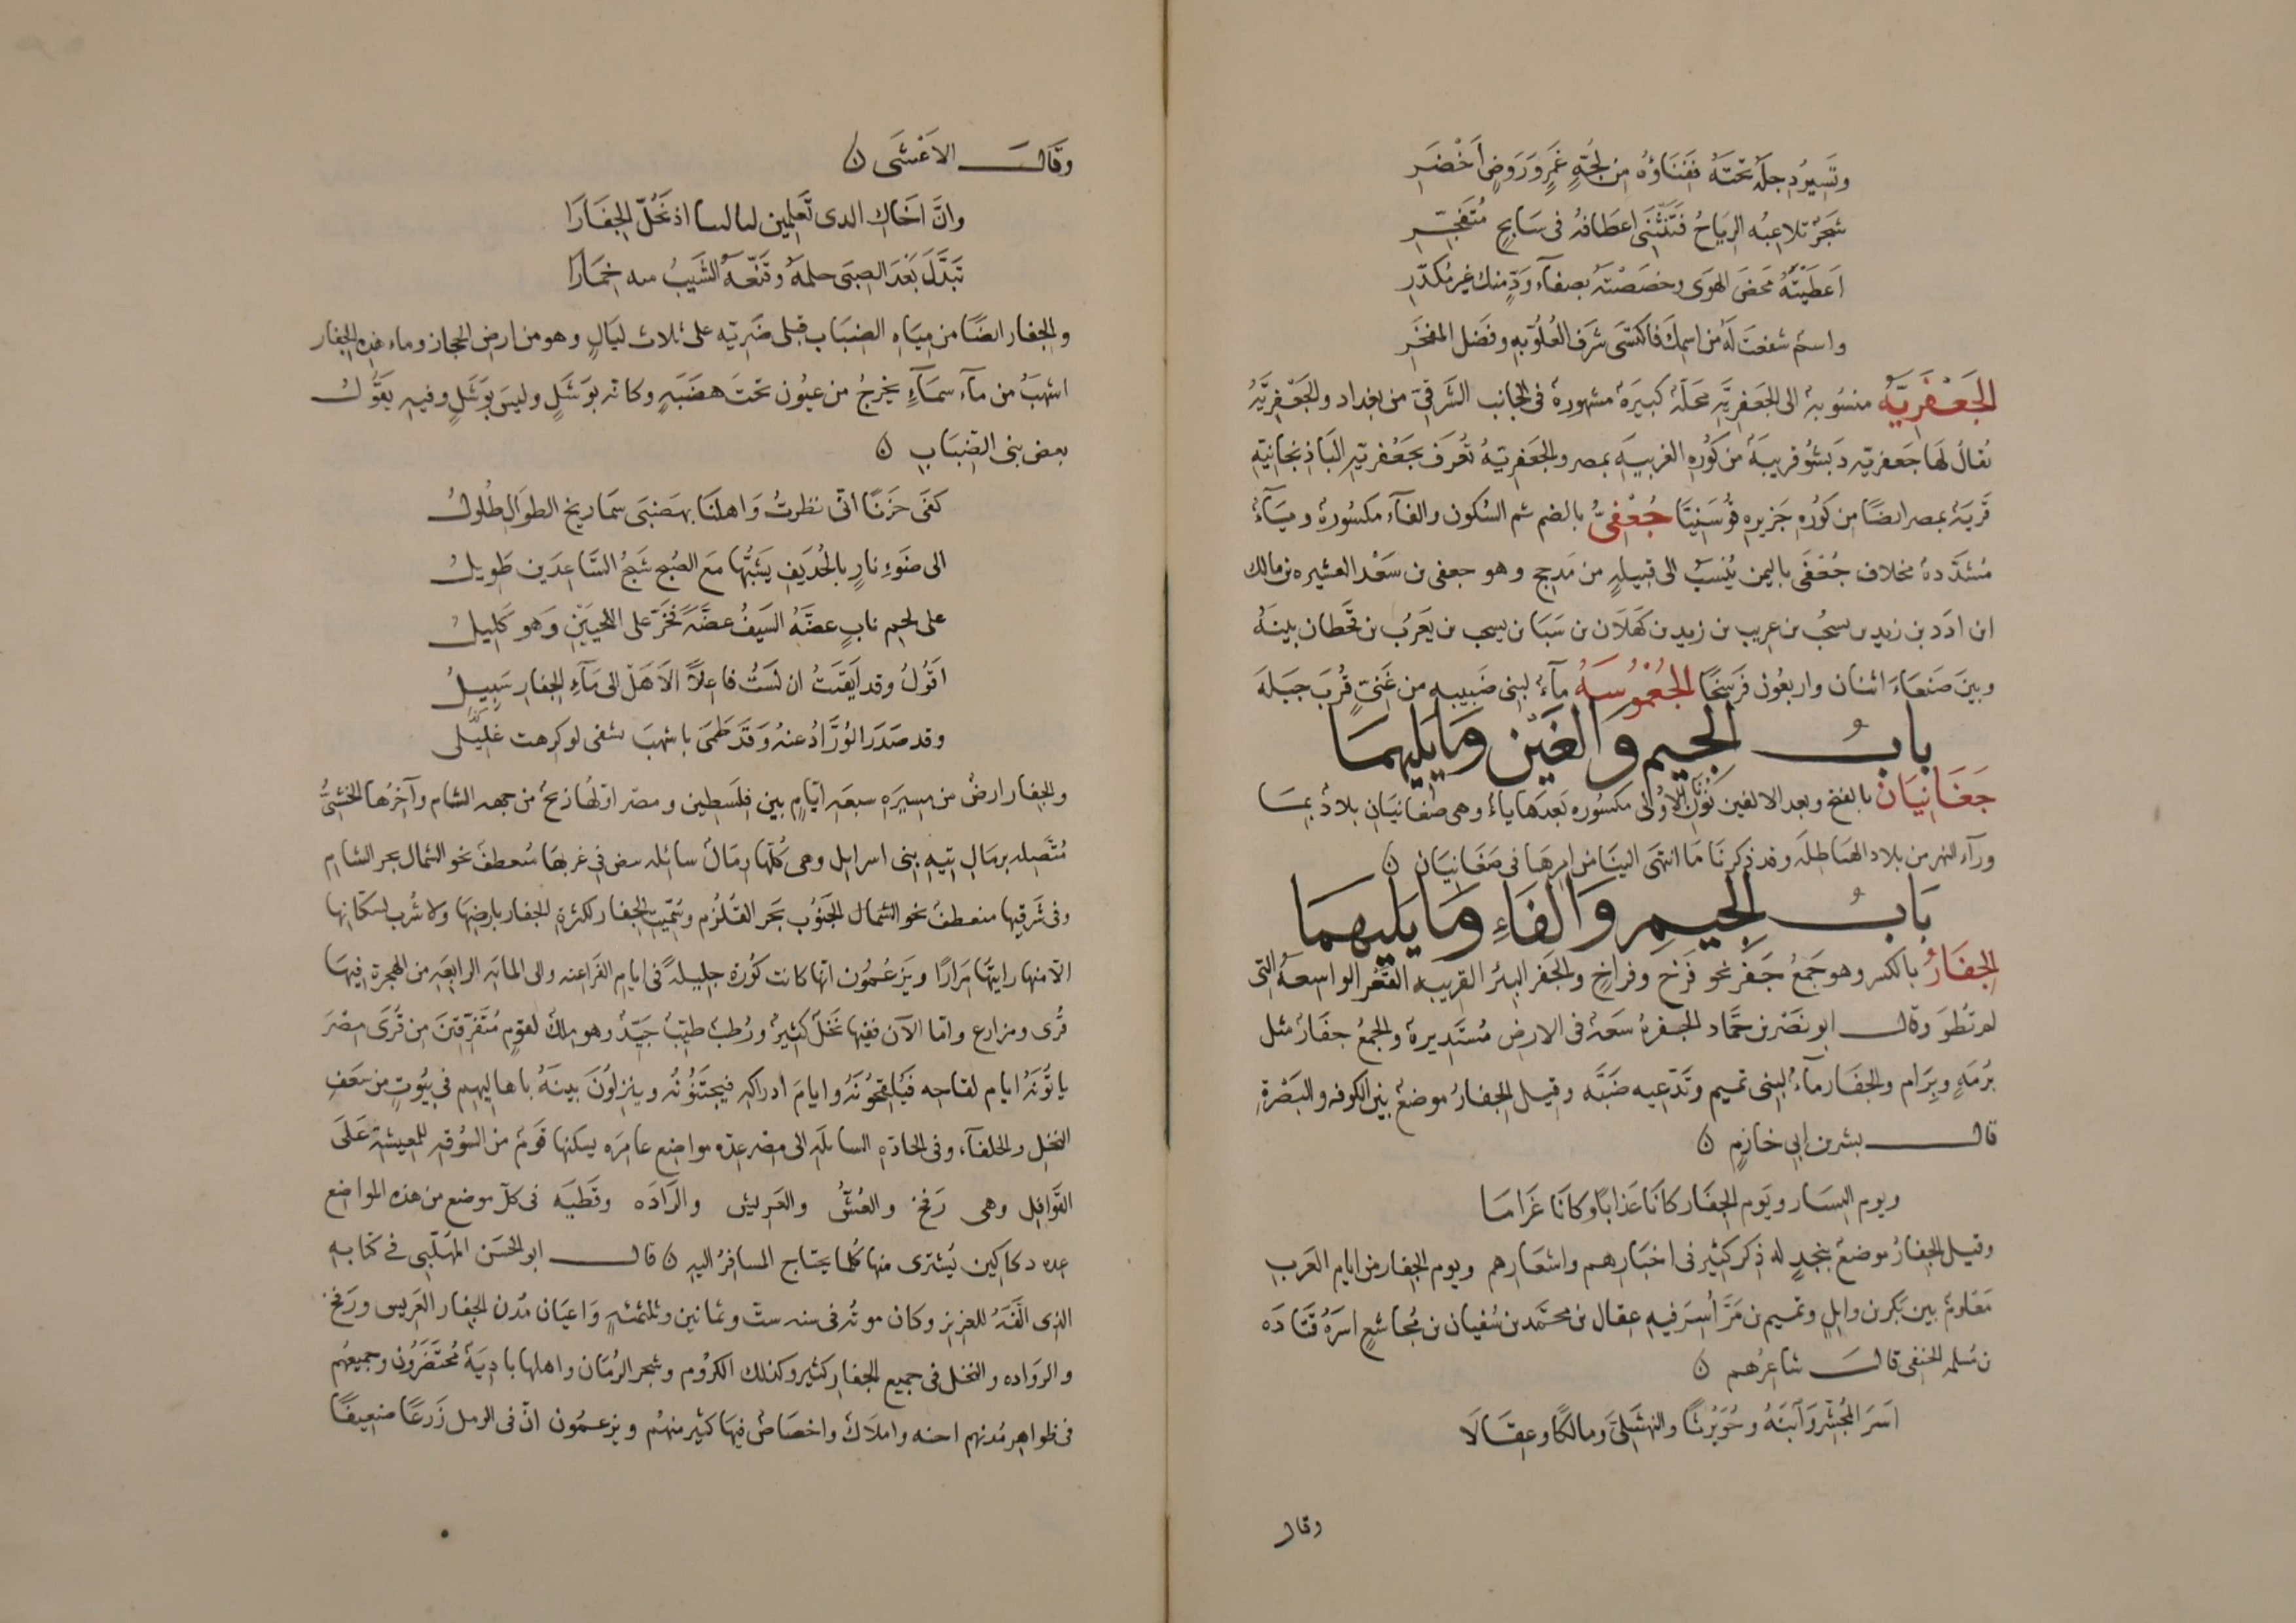 وتَسِيرُ دِجلَةُ تحتَهُ فَفَنَاؤهُ مِن لُجّةٍ غَمْرٍ وَرَوضٍ أخْضَرِ
شَجَرٌ تلاعِبُه الرِيَاحُ فَتَنثَنى اعطَافُهُ فى سَابحٍ مُتَفَجّرِ
اَعطَيْتَهُ مَحضَ الهوَى وخصَصْتَهُ بصفآءِ وَدٍّ منك غيرِ مُكدّرِ
واسمٌ شفعتَ لَهُ من اسمِكَ فاكتسَى شرَفَ العُلُوّ بهِ وفَضل المفخَرِ
الجَعْفَرِيَّةُ منسُوبة الى الجَعفرِيَّةِ محَلّة كبيرَة مشهورة فى الجانب الشَرقىّ من بغداد والجَعْفرِيَّةُ
يُقالُ لهَا جَعفريّه دَبشو قرية من كَوُرهِ الغربيهِ بمصر والجَعفرِيّة تُعرَف بجَعْفريّهِ البَاذنجَانيّهِ
قَريَة بمصر ايضًا من كَوُرهِ جَزيرهِ قُوسَنِيّا جُعْفىُّ بالضم ثم السُكون والفآء مكسُورة ويَآءٌ
مُشدّدة مخلاف جُعْفَى باليمن يُنْسَبُ الى قبيلهٍ من مَدجج وهو جعفى بن سَعْد العشيره بن مالك
ابن ادَد بن زيد بن يسجُب بن عريب بن زيد بن كَهْلَان بن سَبَا بن يسجب بن يَعرُب بن قَحطان بينَهُ
وبينَ صَنعَاءَ اثنان واربعُون فرسَخًا الجُعْمُوسَهُ مآءٌ لبنى ضَبِيبه من غَنِىّ قُربَ جَبَلهَ
بابُ الجيم وَالغَيْن وَمَايَليهمَا
جَغَانِيَانُ بالفتح وبعد الالف نُونَان الاُوْلى مكسُوره بَعدهَا ياءٌ وهى صَغَانيَان بلادٌ بمَا
ورآء النهر من بلاد الهيَاطِلَه وقد ذكرنَا مَا انتهَى الينَا من امرِهَا فى صَغَانيَان ن
بَابُ الجيمِ وَالفَاءِ وَمَا يَليهمَا
الجِفَارُ بالكسر وهو جَمعُ جَفرٍ نحو فَرْخ وفراخٍ والجَفر البئر القريبه القَعْر الواسعهُ التى
لم تُطوَ وقال ابو نَصْر بن حَمَّاد الجفرة سَعَة فى الارض مُستَدِيرة والجمعُ جفَارٌ مثل
بُرمَةٍ وبِرَام والجفَار مآءٌ لبنى تميم وتَدّعيه ضَبَّه وقيل الجِفارُ موضعٌ بين الكوفه والبَصْرة
قال بشر بن ابى خازمٍ ن
ويوم النِسَار ويَوم الجِفَار كانَا عَذابًا وكانَا غَرَامَا
وقيل الجِفَارُ موضعٌ بنجدٍ له ذِكر كثير فى اخبَارِهم واشعَارِهم ويوم الجِفار من ايام العَرب
مَعْلومٌ بين بكر بن وايل وتميم بن مَرّ اُسِرَ فيهِ عِقال بن محَمّد بن سُفيان بن مُجَاشعٍ اسَرَهُ قتَادَه
بن مَسْلمه الحنفى قالَ شاعِرُهم ن
اَسَرَ المُجَشّرَ وَآبْنَهُ وحُوَيْرثًا والنهشَلِىَّ ومالكًا وعِقَالَا
وقال
وقَالَ الاَعْشَى ن
وانَّ اخَاكِ الدى تَعلمِين لىالىىا اذ نَحُلُّ الجِفَارَا
تَبَدَّلَ بَعْدَ الصِبَى حلمَهُ وقَنّعَهُ الشَيبُ منه خِمَارَا
والجفار ايضًا من مِيَاهِ الضِبَاب قبلى ضَرِيّه على ثلاث ليَالٍ وهو من ارضِ الحِجاز وماء هذه الجفار
اشهَبُ من مآء سمَآءٍ يخرجُ من عيُون تحتَ هضَبَهٍ وكانّه بوَشَلٍ وليسَ بوَشَلٍ وفيهِ يقَوُلُ
بعض بنى الضِبَاب ن
كفَى حَزَنًا انّى نظرتُ وَاهلنَا بهَضبَى سمَاريخ الطوَالِ طُلولُ
الى ضَوءِ نارٍ بالحُدَيفِ يَشبُّهَا مَعَ الصُبح شَبْحُ السّاعِدَين طَوِيلُ
على لحمِ نابٍ عضَّهُ السَيفُ عضّةً فَخَرَّ على اللحيَيْنِ وَهو كَلِيلُ
اقُولُ وقد اَيقَنتُ ان لَستُ فاعِلاً الَا هَلْ الى مَآءِ الجِفار سَبِيلُ
وقد صَدَرَ الوُرَّادُ عنهُ وَقَد طَمىَ باشهبَ يشفى لو كرِهت غَليلى
والجِفَار ارضٌ من مسِيرَهِ سبعَه ايّامٍ بين فِلَسطِين ومصر اوّلهَا رَفحُ من جهه الشام وآخِرُها الخشَبىُّ
مُتَّصِله برمَالِ تِيهِ بنى اسرايل وهى كُلّها رمَالٌ سائله بيض فى غربهَا مُنعطفٌ نحو الشمال بحر الشام
وفى شَرقِيها منعطفٌ نحو الشمال الجَنوُب بَحَر القُلزُم وسُمّيتِ الجِفار لكثرةِ الجفار بارضِهَا ولا شُرب لسكّانِهَا
الّا منها رايتهَا مِرَارًا ويَزعُمُون انّها كانت كَوُرة جليلهً فى ايام الفَراعنه والى المايَه الرابعَه من الهجرة فِيهَا
قُرى ومزارع وامّا الآن ففيها نَخلٌ كثيرٌ ورُطَب طيِّبٌ جَيّدٌ وهو ملكٌ لقومٍ مُتَفَرّقِينَ من قُرَى مصْرَ
ياتُونَهُ ايام لقاحِه فَيُلقحُونَهُ وايامَ ادراكهِ فيجتَنُونُه وينزلوُنَ بينَهُ باهاليهم فى بيُوتٍ من سَعَفِ
النخل والحلفآء وفى الجادّهِ السابلهِ الى مصر عِده مواضِع عامرَه يسكنها قَومٌ من السُوقهِ للمعيشة عَلىَ
القَوَافِل وهى رَفَحُ والعُشُّ والعَرِيش والرَّادَه وقَطيَه فى كلّ موضع من هذه المواضع
عده دكاكين يُشترى منها كُلما يحتاج المسافرُ اليهِ ن قال ابو الحسَن المُهَلّبى فى كتابهِ
الذى الّفَهُ للعزيز وكان موتُه فى سنه ستّ وثمانين وثلثمئهٍ وَاعيَان مُدن الجِفار العَرِيس ورَفحُ
والرَوَاده والنخل فى جميع الجِفار كثير وكذلك الكرُوم وشجر الرُمّان واهلها بادِيَة مُحتَضَرُون وجميعُهم
فى ظواهرِ مُدنِهم اجنه واملَاكٌ واخصَاصٌ فيهَا كثير منهُم ويزعمُون انّ فى الرمل زَرعًا ضعيفًا